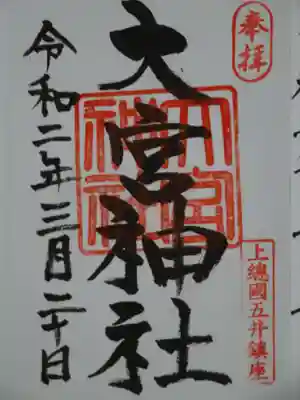 奉拝
上總國五井鎮座
大宮神社
令和二年三月二十日